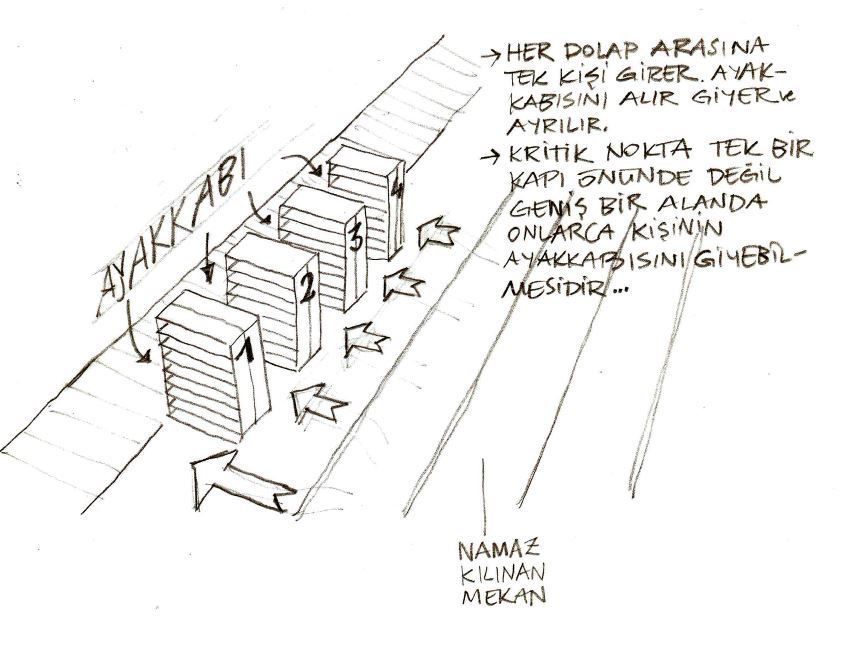 → HER DOLAP ARASINA
TEK KİŞİ GİRER. AYAK-
KABISINI ALIR GİYER ve
AYRILIR.
→ KRİTİK NOKTA TEK BİR
KAPI ÖNÜNDE DEĞİL
GENİŞ BİR ALANDA
ONLARCA KİŞİNİN
AYAKKABISINI GİYEBİL-
MESİDİR...
AYAKKABI
1
2
3
4
NAMAZ
KILINAN
MEKAN